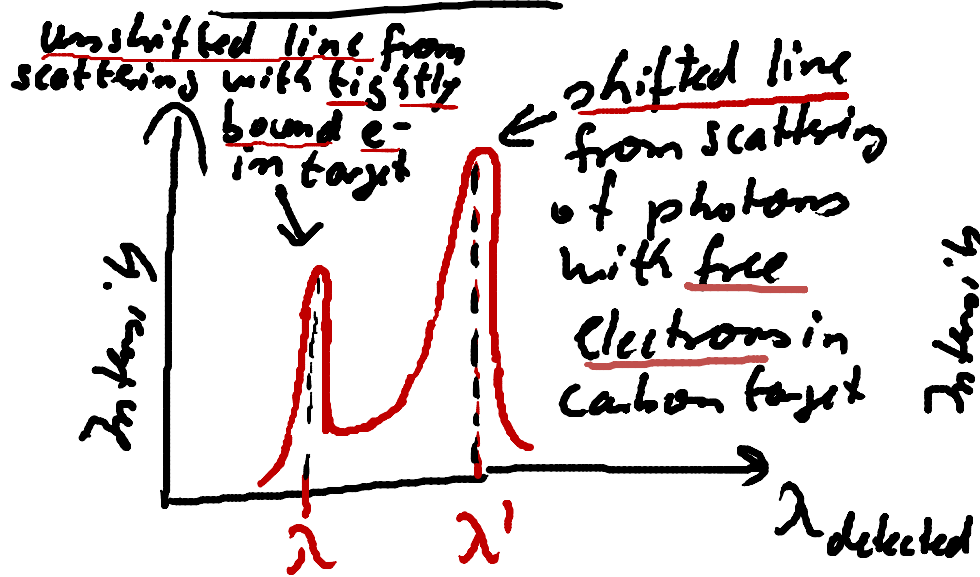 unshifted line from
scattering with tightly
bound e-
in target
shifted line
from scattering
of photons
with free
electrons in
carbon target
Intensity
λ
λ'
λ detected
Intensity